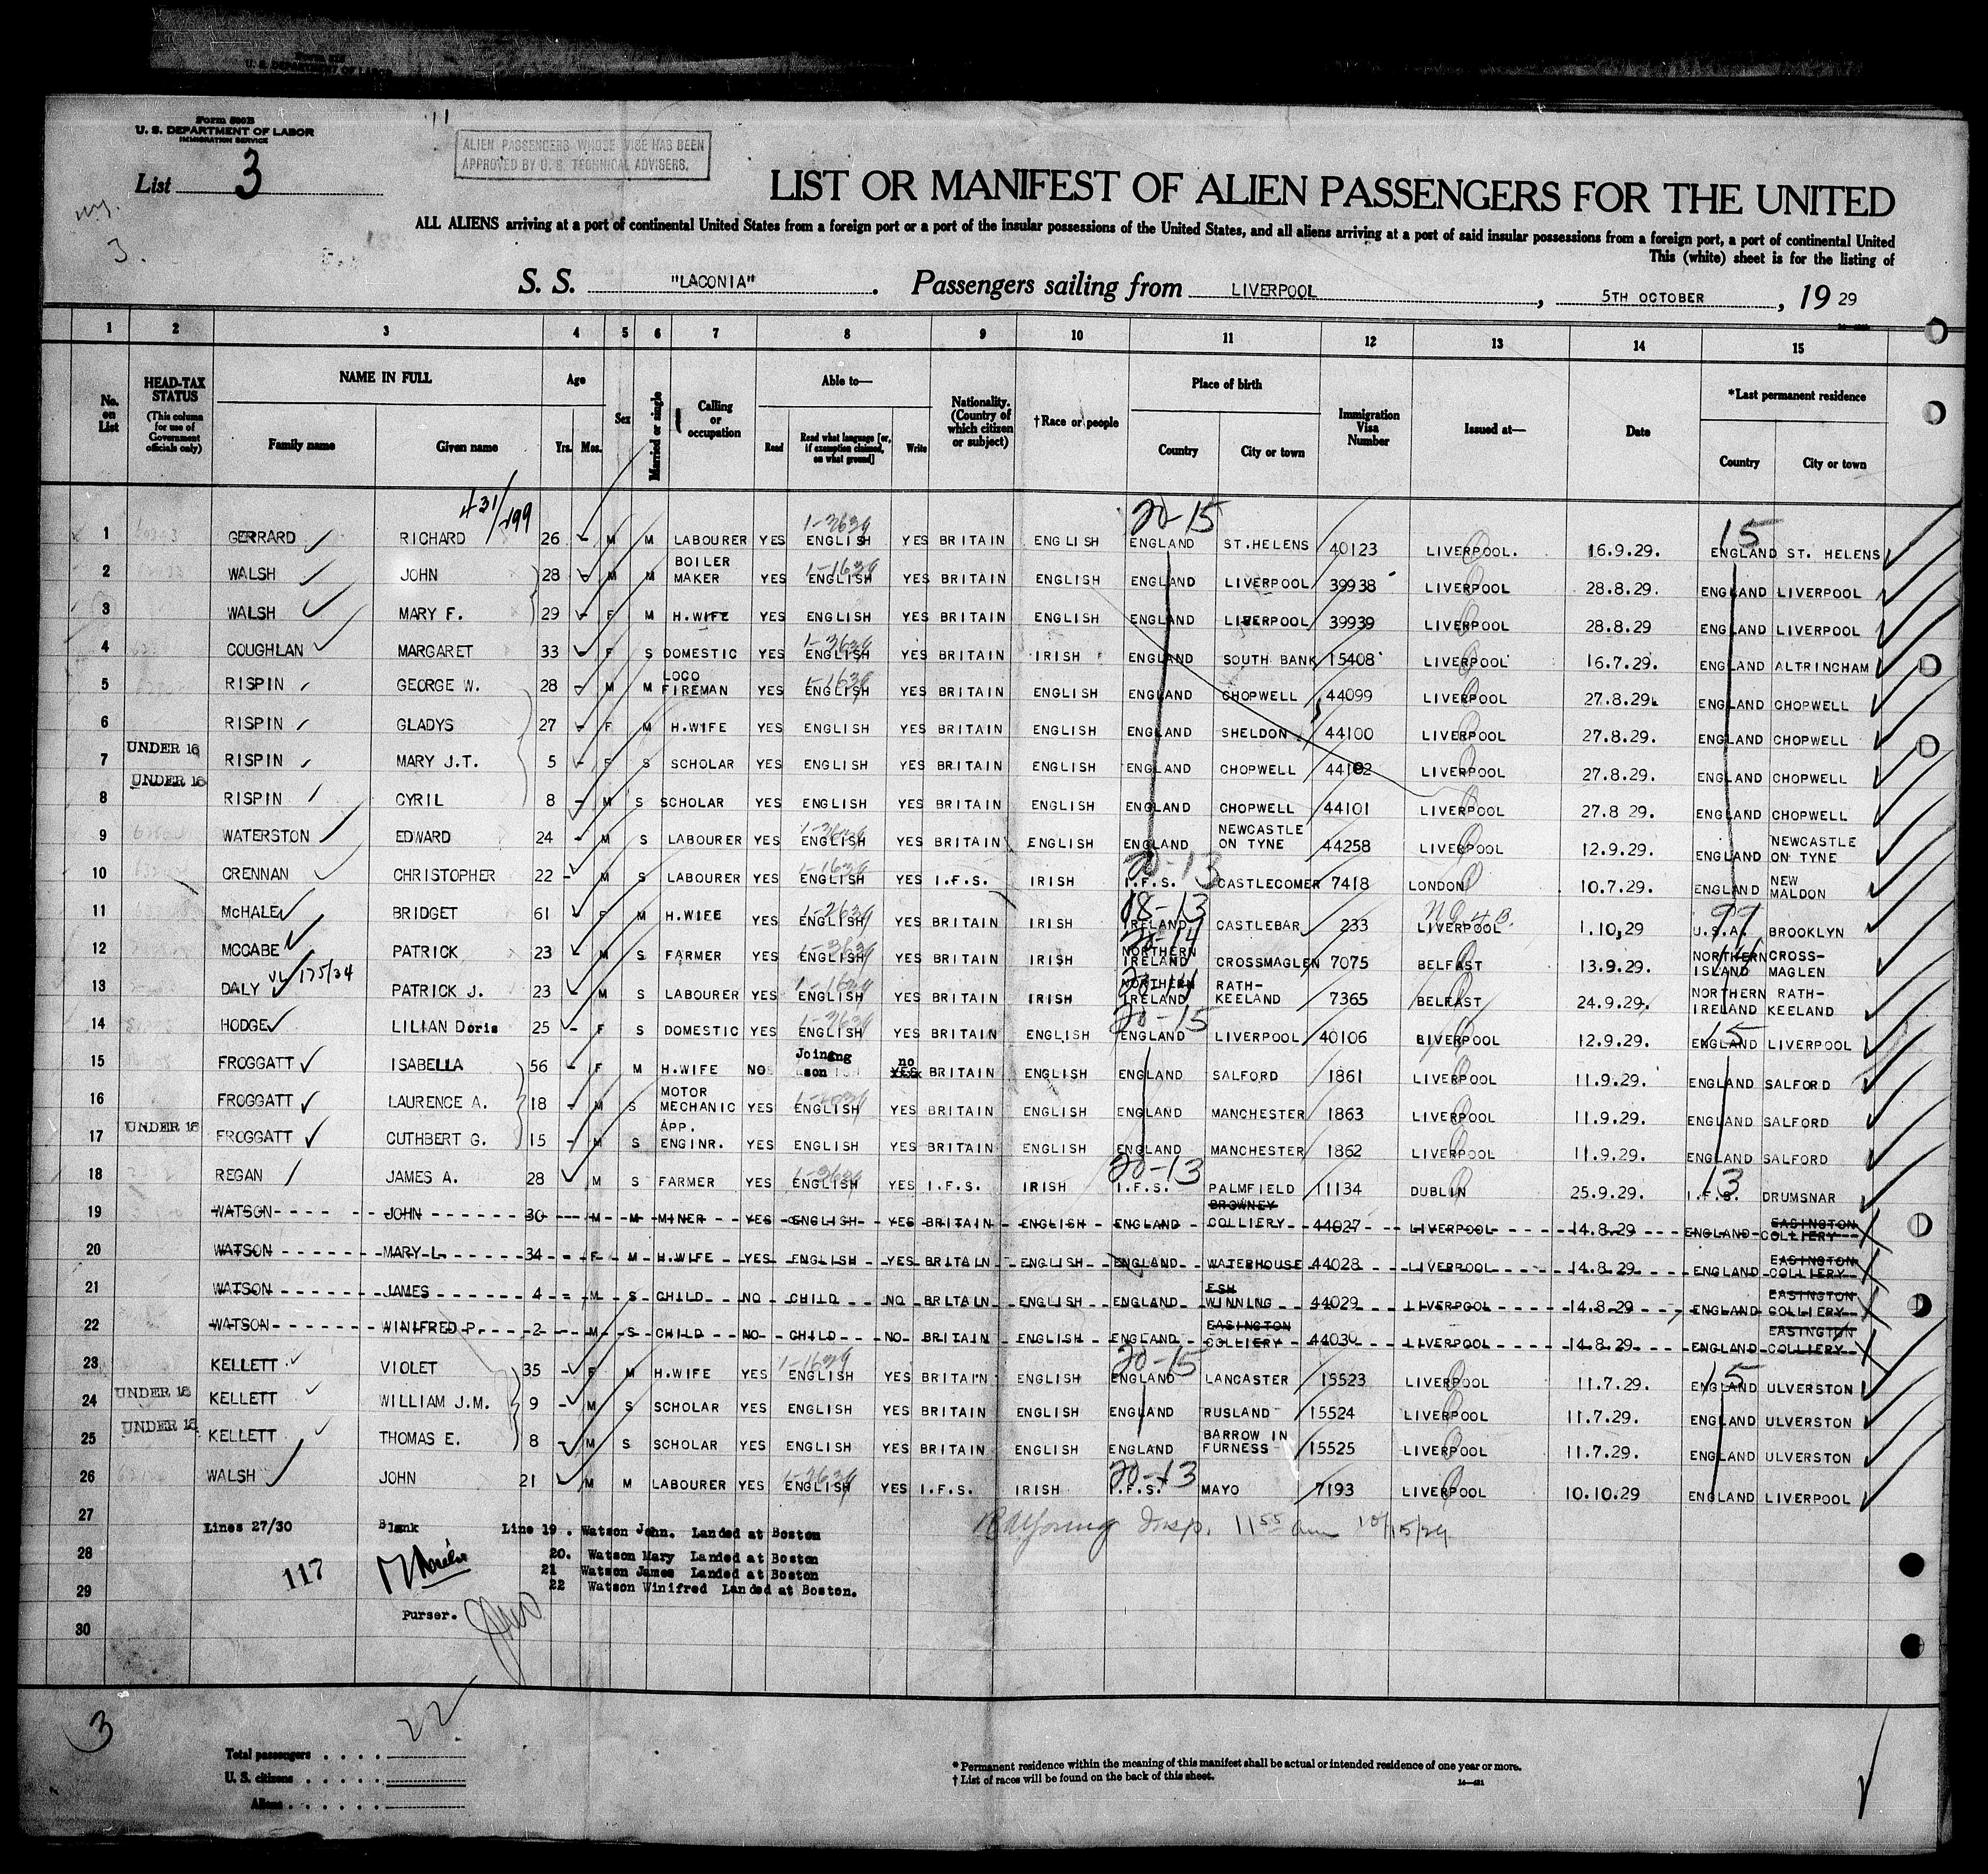 Form 500B
U. S. DEPARTMENT OF LABOR
IMMIGRATION SERVICE
List 3
ALIEN PASSENGERS WHOSE VISE HAS BEEN
APPROVED BY U. S. TECHNICAL ADVISERS.
LIST OR MANIFEST OF ALIEN PASSENGERS FOR THE UNITED
ALL ALIENS arriving at a port of continental United States from a foreign port or a port of the insular possessions of the United States, and all aliens arriving at a port of said insular possessions from a foreign port, a port of continental United
This (white) sheet is for the listing of
3.
S. S. "LACONIA". Passengers sailing from LIVERPOOL, 5TH OCTOBER, 19 29
1 2 3 4 5 6 7 8 9 10 11 12 13 14 15
No. on List HEAD-TAX STATUS (This column for use of Government officials only) NAME IN FULL Family name Given name Age Yrs. Mos. Sex Married or single Calling or occupation Able to— Read Read what language [or, if exemption claimed, on what ground] Write Nationality. (Country of which citizen or subject) †Race or people Place of birth Country City or town Immigration Visa Number Issued at— Date *Last permanent residence Country City or town
431/499 20-15 15
1 GERRARD RICHARD 26 M M LABOURER YES 1-3639 ENGLISH YES BRITAIN ENGLISH ENGLAND ST.HELENS 40123 LIVERPOOL. 16.9.29. ENGLAND ST. HELENS
2 WALSH JOHN 28 M M BOILER MAKER YES 1-1639 ENGLISH YES BRITAIN ENGLISH ENGLAND LIVERPOOL 39938 LIVERPOOL 28.8.29. ENGLAND LIVERPOOL
3 WALSH MARY F. 29 F M H.WIFE YES ENGLISH YES BRITAIN ENGLISH ENGLAND LIVERPOOL 39939 LIVERPOOL 28.8.29 ENGLAND LIVERPOOL
4 COUGHLAN MARGARET 33 F S DOMESTIC YES 1-3639 ENGLISH YES BRITAIN IRISH ENGLAND SOUTH BANK 15408 LIVERPOOL 16.7.29. ENGLAND ALTRINCHAM
5 RISPIN GEORGE W. 28 M M LOCO FIREMAN YES 1-1639 ENGLISH YES BRITAIN ENGLISH ENGLAND CHOPWELL 44099 LIVERPOOL 27.8.29. ENGLAND CHOPWELL
6 RISPIN GLADYS 27 F M H.WIFE YES ENGLISH YES BRITAIN ENGLISH ENGLAND SHELDON 44100 LIVERPOOL 27.8.29. ENGLAND CHOPWELL
7 UNDER 16 RISPIN MARY J.T. 5 F S SCHOLAR YES ENGLISH YES BRITAIN ENGLISH ENGLAND CHOPWELL 44102 LIVERPOOL 27.8.29. ENGLAND CHOPWELL
8 UNDER 16 RISPIN CYRIL 8 M S SCHOLAR YES ENGLISH YES BRITAIN ENGLISH ENGLAND CHOPWELL 44101 LIVERPOOL 27.8 29. ENGLAND CHOPWELL
9 WATERSTON EDWARD 24 M S LABOURER YES 1-3639 ENGLISH YES BRITAIN ENGLISH ENGLAND NEWCASTLE ON TYNE 44258 LIVERPOOL 12.9.29. ENGLAND NEWCASTLE ON TYNE
10 CRENNAN CHRISTOPHER 22 M S LABOURER YES 1-1639 ENGLISH YES I.F.S. IRISH 20-13 I.F.S. CASTLECOMER 7418 LONDON 10.7.29. ENGLAND NEW MALDON
11 McHALE BRIDGET 61 F M H.WIFE YES 1-2639 ENGLISH YES BRITAIN IRISH 18-13 IRELAND CASTLEBAR 233 NQ 4B LIVERPOOL 1.10.29 99 U.S.A. BROOKLYN
12 MCCABE PATRICK 23 M S FARMER YES 1-3639 ENGLISH YES BRITAIN IRISH 20-14 NORTHERN IRELAND CROSSMAGLEN 7075 BELFAST 13.9.29. 14 NORTHERN ISLAND CROSS-MAGLEN
13 DALY VL 175/34 PATRICK J. 23 M S LABOURER YES 1-1639 ENGLISH YES BRITAIN IRISH 20-14 NORTHERN IRELAND RATH-KEELAND 7365 BELFAST 24.9.29. NORTHERN IRELAND RATH-KEELAND
14 HODGE LILIAN Doris 25 F S DOMESTIC YES 1-3639 ENGLISH YES BRITAIN ENGLISH 20-15 ENGLAND LIVERPOOL 40106 LIVERPOOL 12.9.29. 15 ENGLAND LIVERPOOL
15 FROGGATT ISABELLA 56 F M H.WIFE NO Joining son no YES BRITAIN ENGLISH ENGLAND SALFORD 1861 LIVERPOOL 11.9.29. ENGLAND SALFORD
16 FROGGATT LAURENCE A. 18 M S MOTOR MECHANIC YES ENGLISH YES BRITAIN ENGLISH ENGLAND MANCHESTER 1863 LIVERPOOL 11.9.29. ENGLAND SALFORD
17 UNDER 16 FROGGATT CUTHBERT G. 15 M S APP. ENGINR. YES ENGLISH YES BRITAIN ENGLISH ENGLAND MANCHESTER 1862 LIVERPOOL 11.9.29. ENGLAND SALFORD
18 REGAN JAMES A. 28 M S FARMER YES 1-3639 ENGLISH YES I.F.S. IRISH 20-13 I.F.S. PALMFIELD 11134 DUBLIN 25.9.29. 13 I.F.S. DRUMSNAR
19 WATSON JOHN 30 M M MINER YES ENGLISH YES BRITAIN ENGLISH ENGLAND BROWNEY COLLIERY 44027 LIVERPOOL 14.8.29 ENGLAND EASINGTON COLLIERY
20 WATSON MARY L. 34 F M H.WIFE YES ENGLISH YES BRITAIN ENGLISH ENGLAND WATERHOUSE 44028 LIVERPOOL 14.8.29. ENGLAND EASINGTON COLLIERY
21 WATSON JAMES 4 M S CHILD NO CHILD NO BRITAIN ENGLISH ENGLAND ESH WINNING 44029 LIVERPOOL 14.8.29 ENGLAND EASINGTON COLLIERY
22 WATSON WINIFRED P. 2 M S CHILD NO CHILD NO BRITAIN ENGLISH ENGLAND EASINGTON COLLIERY 44030 LIVERPOOL 14.8.29. ENGLAND EASINGTON COLLIERY
23 KELLETT VIOLET 35 F M H.WIFE YES 1-1639 ENGLISH YES BRITAIN ENGLISH 20-15 ENGLAND LANCASTER 15523 LIVERPOOL 11.7.29. 15 ENGLAND ULVERSTON
24 UNDER 16 KELLETT WILLIAM J.M. 9 M S SCHOLAR YES ENGLISH YES BRITAIN ENGLISH ENGLAND RUSLAND 15524 LIVERPOOL 11.7.29. ENGLAND ULVERSTON
25 UNDER 16 KELLETT THOMAS E. 8 M S SCHOLAR YES ENGLISH YES BRITAIN ENGLISH ENGLAND BARROW IN FURNESS 15525 LIVERPOOL 11.7.29. ENGLAND ULVERSTON
26 WALSH JOHN 21 M M LABOURER YES 1-2639 ENGLISH YES I.F.S. IRISH 20-13 I.F.S. MAYO 7193 LIVERPOOL 10.10.29 ENGLAND LIVERPOOL
27 Lines 27/30 Blank Line 19. Watson John. Landed at Boston Insp. 11 55 am 10/15/29
28 20. Watson Mary Landed at Boston
117 21 Watson James Landed at Boston
29 22 Watson Winifred Landed at Boston.
Purser.
30
3
22
Total passengers
U. S. citizens
Aliens
* Permanent residence within the meaning of this manifest shall be actual or intended residence of one year or more.
† List of races will be found on the back of this sheet.
14—421